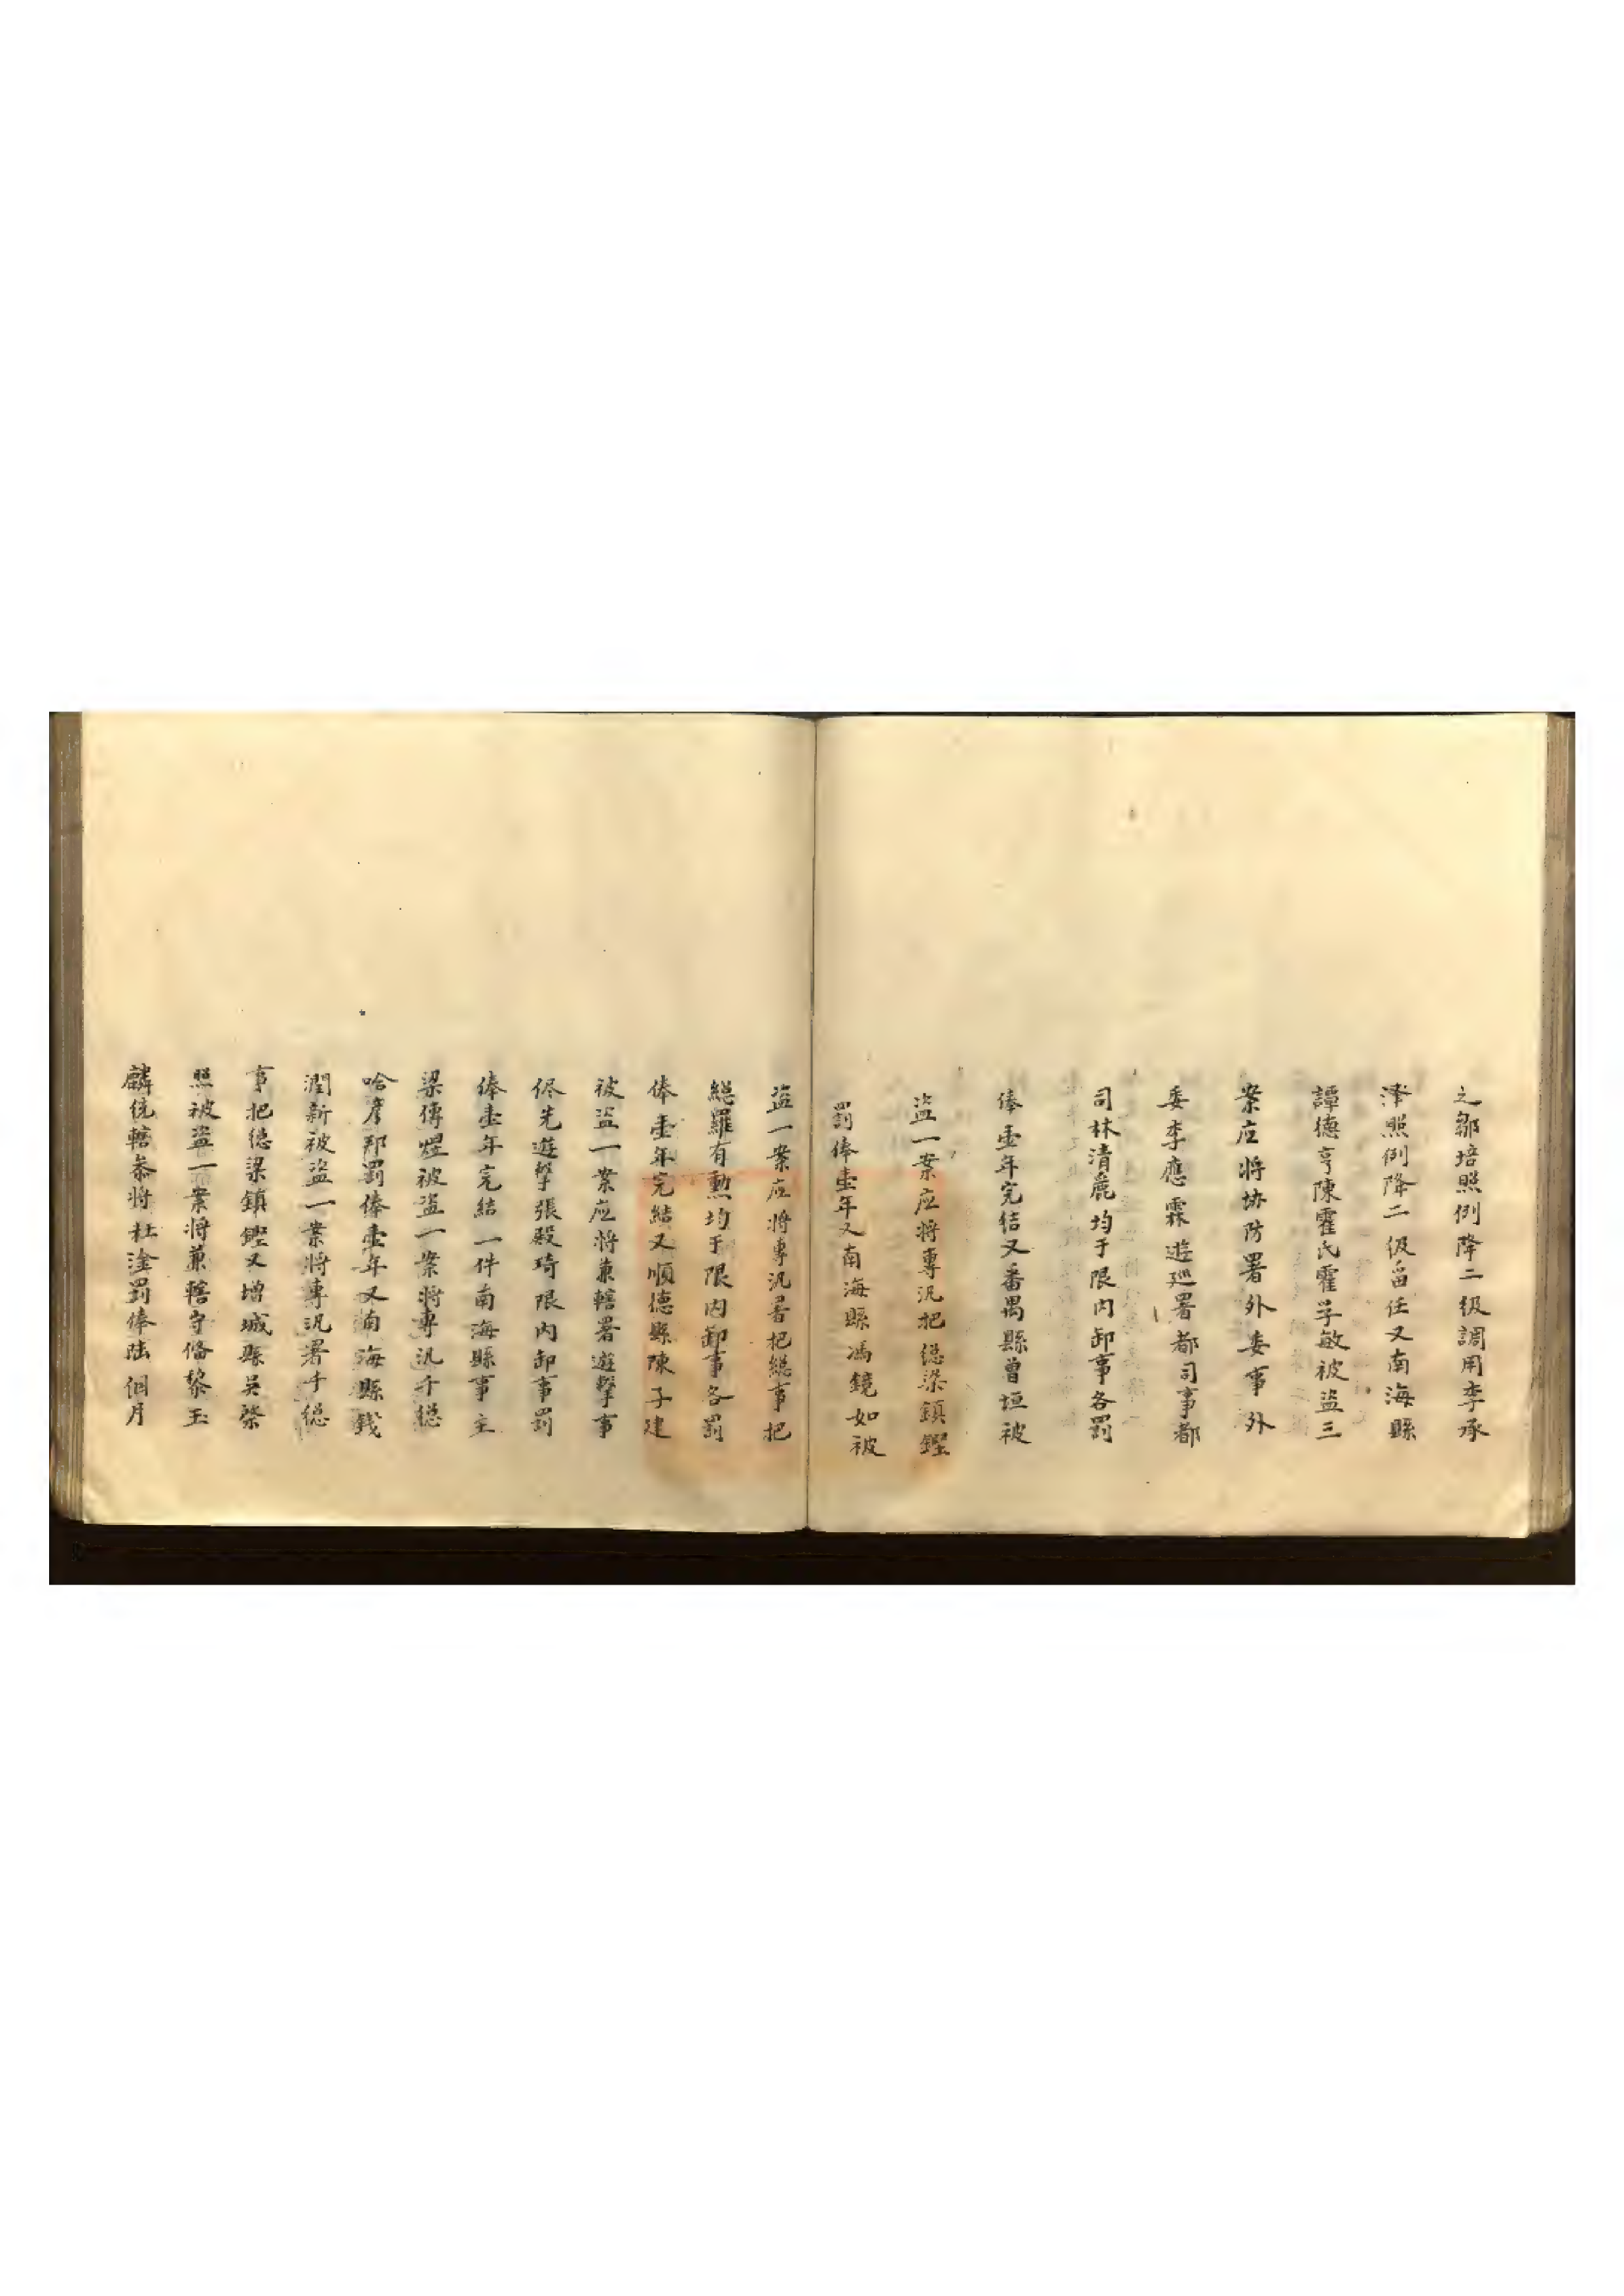 之鄒培照例降二級調用李承
澤照例降二級畱任又南海縣
譚德亨陳霍氏霍孚敏被盜三
案应將協防署外委事外
委李應霖遊廵署都司事都
司林清麃均于限內卸事各罰
俸壹年完结又番禺縣曾垣被
盜一案应將專汛把總梁鎮鏗
罰俸壹年又南海縣馮鏡如被
盜一案应將專汛署把総事把
總羅有勲均于限內卸事各罰
俸壹年完結又順德縣陳子建
被盜一案应將兼轄署遊擊事
侭先遊擊張殿琦限內卸事罰
俸壹年完結一件南海縣事主
梁傳煜被盜一案將專汛千総
哈彦邦罰俸壹年又南海縣錢
潤新被盜一案將專汛署千総
事把總梁鎮鏗又增城縣吳榮
照被盜一案將兼轄守俻黎玉
麟統轄叅將杜淦罰俸陆個月